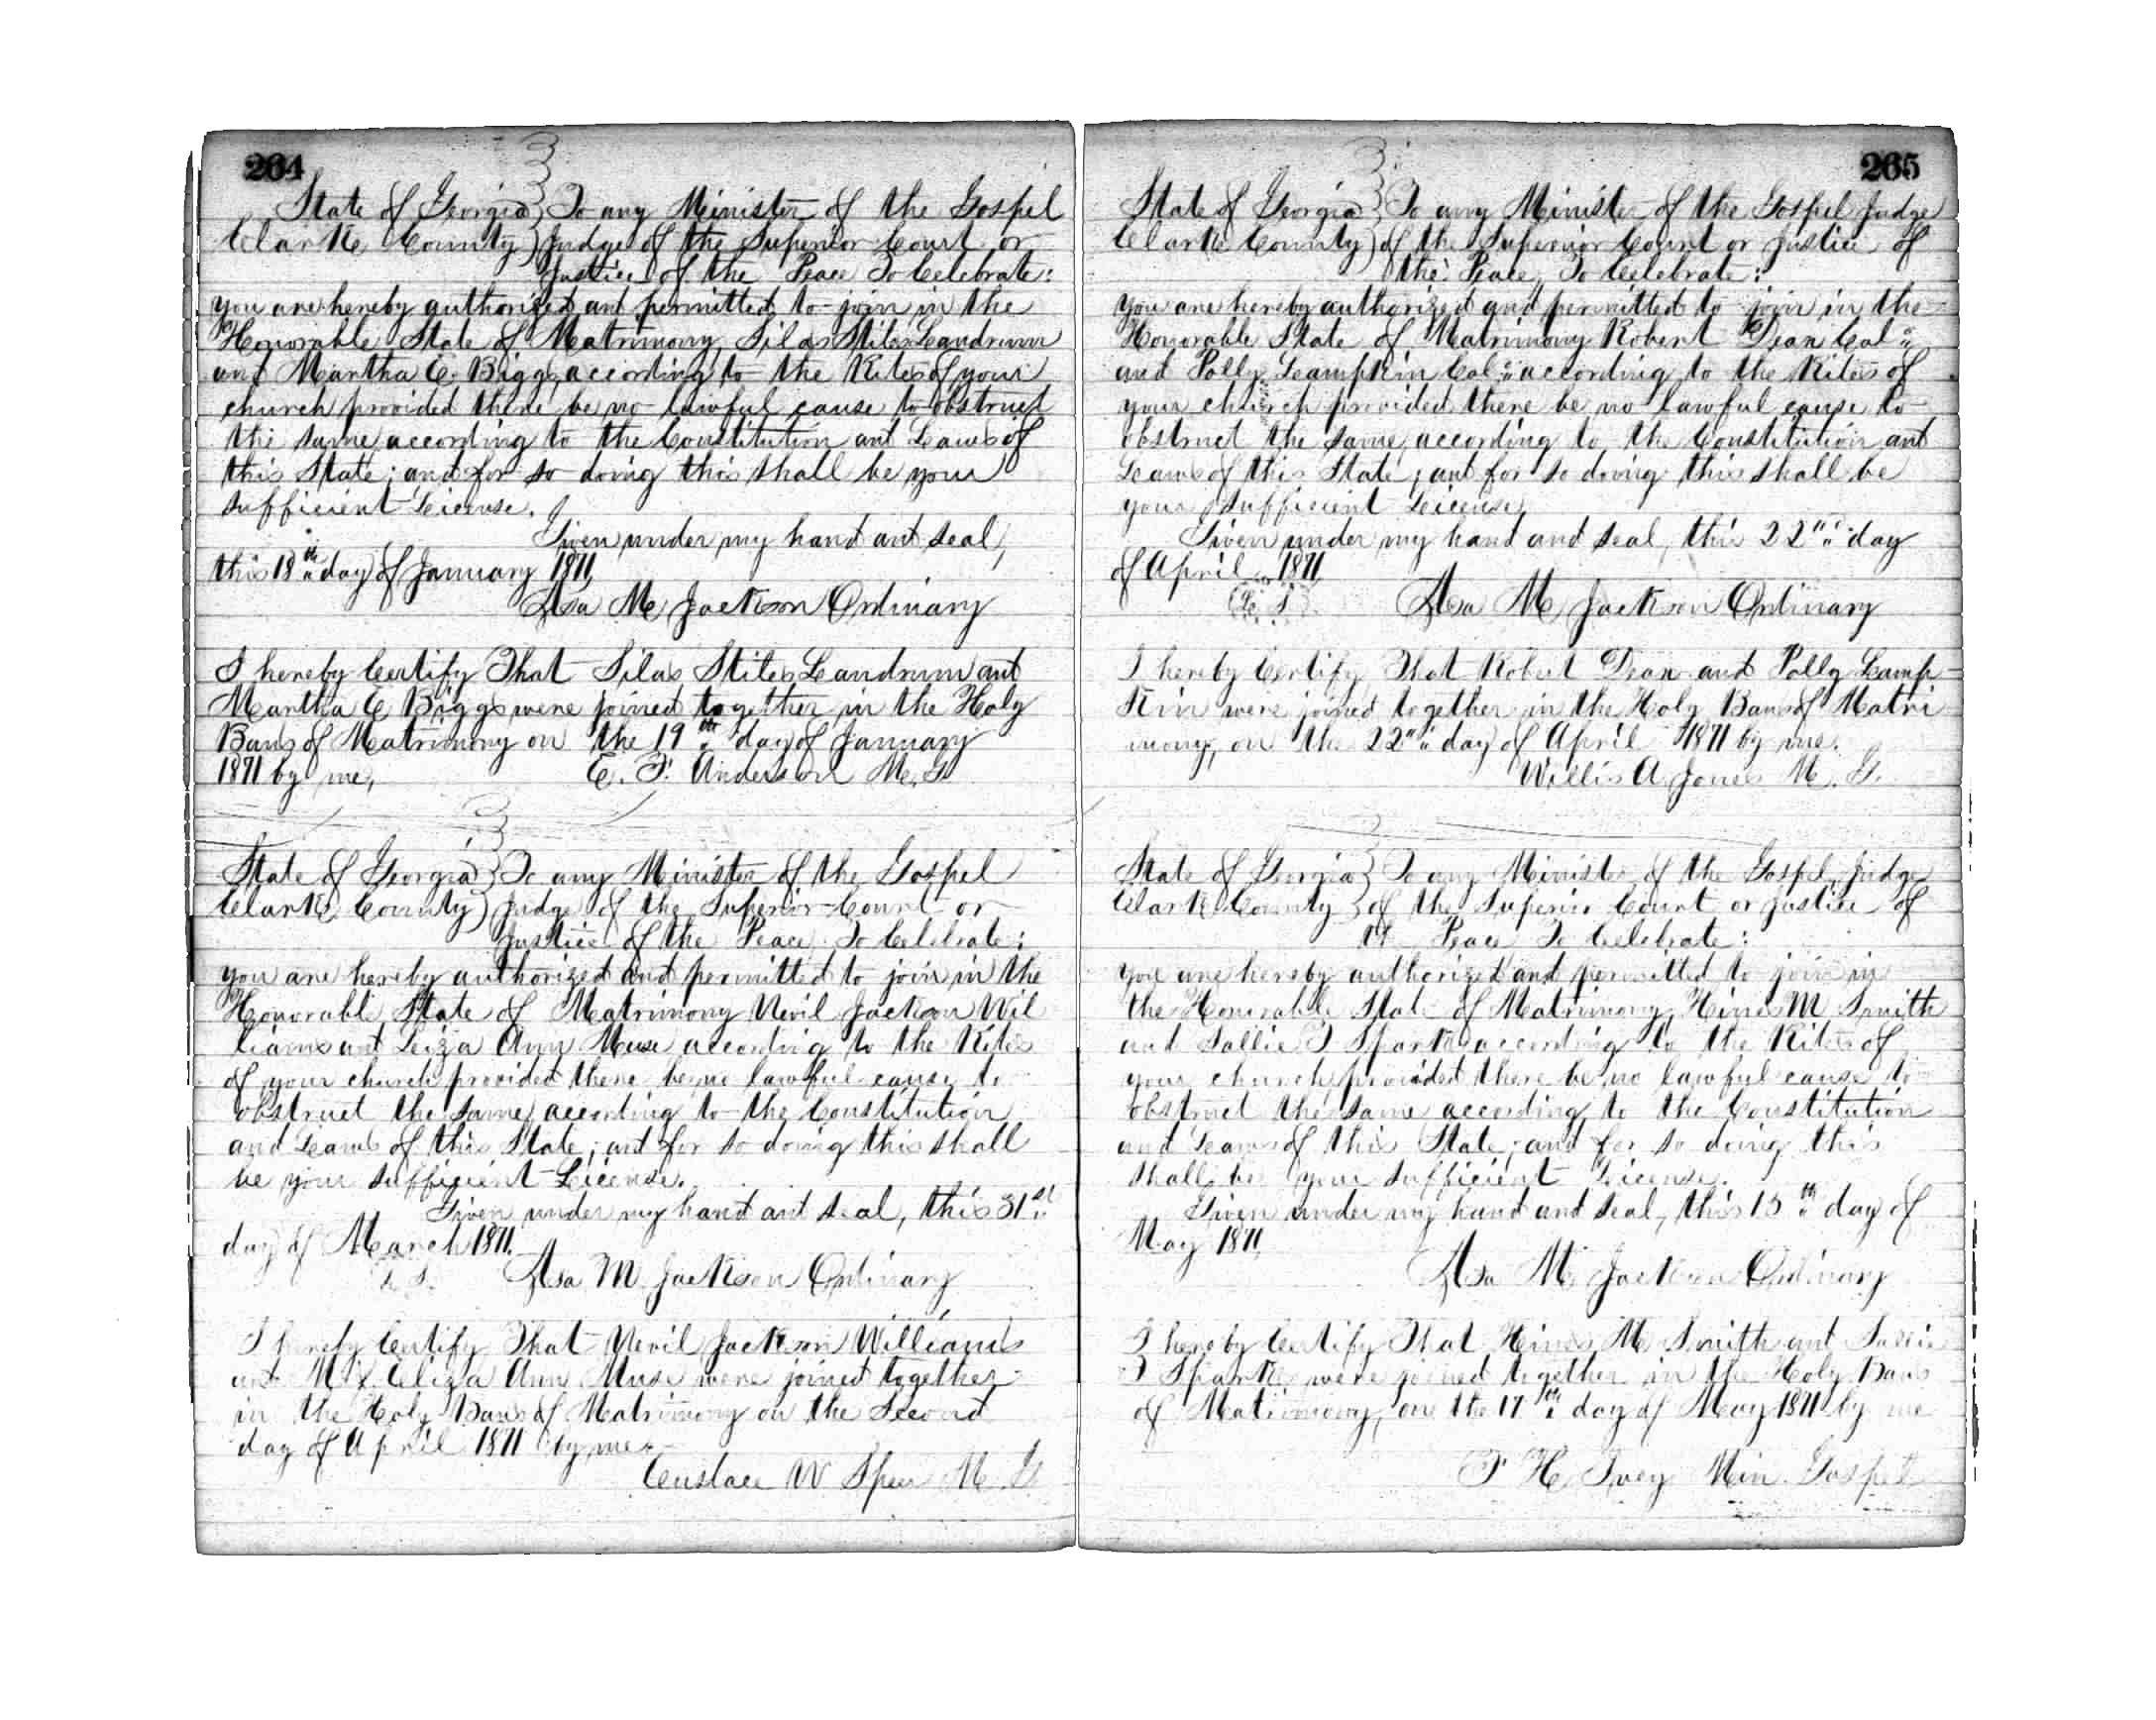 264
State of Georgia } To any Minister of the Gospel
Clarke County } Judge of the Superior Court or
Justice of the Peace To Celebrate:
you are hereby authorized and permitted to join in the
Honorable State of Matrimony Silas Stiles Landrum
and Martha E. Biggs according to the Rites of your
church provided there be no lawful cause to obstruct
the same according to the Constitution and Laws of
this State; and for so doing this shall be your
sufficient License.
Given under my hand and seal,
this 18th day of January 1871
Asa M Jackson Ordinary
I hereby Certify That Silas Stiles Landrum and
Martha E Biggs were joined together in the Holy
Bans of Matrimony on the 19th day of January
1871 by me, E. F. Anderson M. G
State of Georgia } To any Minister of the Gospel
Clarke County } Judge of the Superior Court or
Justice of the Peace To Celebrate:
you are hereby authorized and permitted to join in the
Honorable State of Matrimony Nevil Jackson Wil
liams and Leiza Ann Muse according to the Rites
of your church provided there be no lawful cause to
obstruct the same according to the Constitution
and Laws of this State; and for so doing this shall
be your sufficient License.
Given under my hand and seal, this 31st
day of March 1871.
L. S. Asa M. Jackson Ordinary
I hereby Certify That Nevil Jackson Williams
and Eliza Ann Muse were joined together
in the Holy Bans of Matrimony on the Second
day of April 1871 by me
W Speer M. G
265
State of Georgia } To any Minister of the Gospel Judge
Clarke County } of the Superior Court or Justice of
the Peace To Celebrate:
you are hereby authorized and permitted to join in the
Honorable State of Matrimony Robert Dean Col"
and Polly Lampkin Col" according to the Rites of
your church provided there be no lawful cause to
obstruct the same according to the Constitution and
Laws of this State; and for so doing this shall be
your sufficient License
Given under my hand and seal, this 22" day
of April 1871
L. S. Asa M Jackson Ordinary
I hereby Certify That Robert Dean and Polly Lamp-
kin were joined together in the Holy Bans of Matri
mony, on the 22" day of April 1871 by me.
Willis A Jones M. G.
State of Georgia } To any Minister of the Gospel Judge
Clarke County } of the Superior Court or Justice of
the Peace To Celebrate:
you are hereby authorized and permitted to join in
the Honorable State of Matrimony Hines M Smith
and Sallie T Sparks according to the Rites of
your church provided there be no lawful cause to
obstruct the same according to the Constitution
and Laws of this State; and for so doing this
shall be your sufficient License.
Given under my hand and seal, this 15th day of
May 1871
Asa M Jackson Ordinary
I hereby Certify That Hines M Smith and Sallie
T Sparks were joined together in the Holy Bans
of Matrimony, on the 17th day of May 1871 by me
F H Ivey Min. Gospel